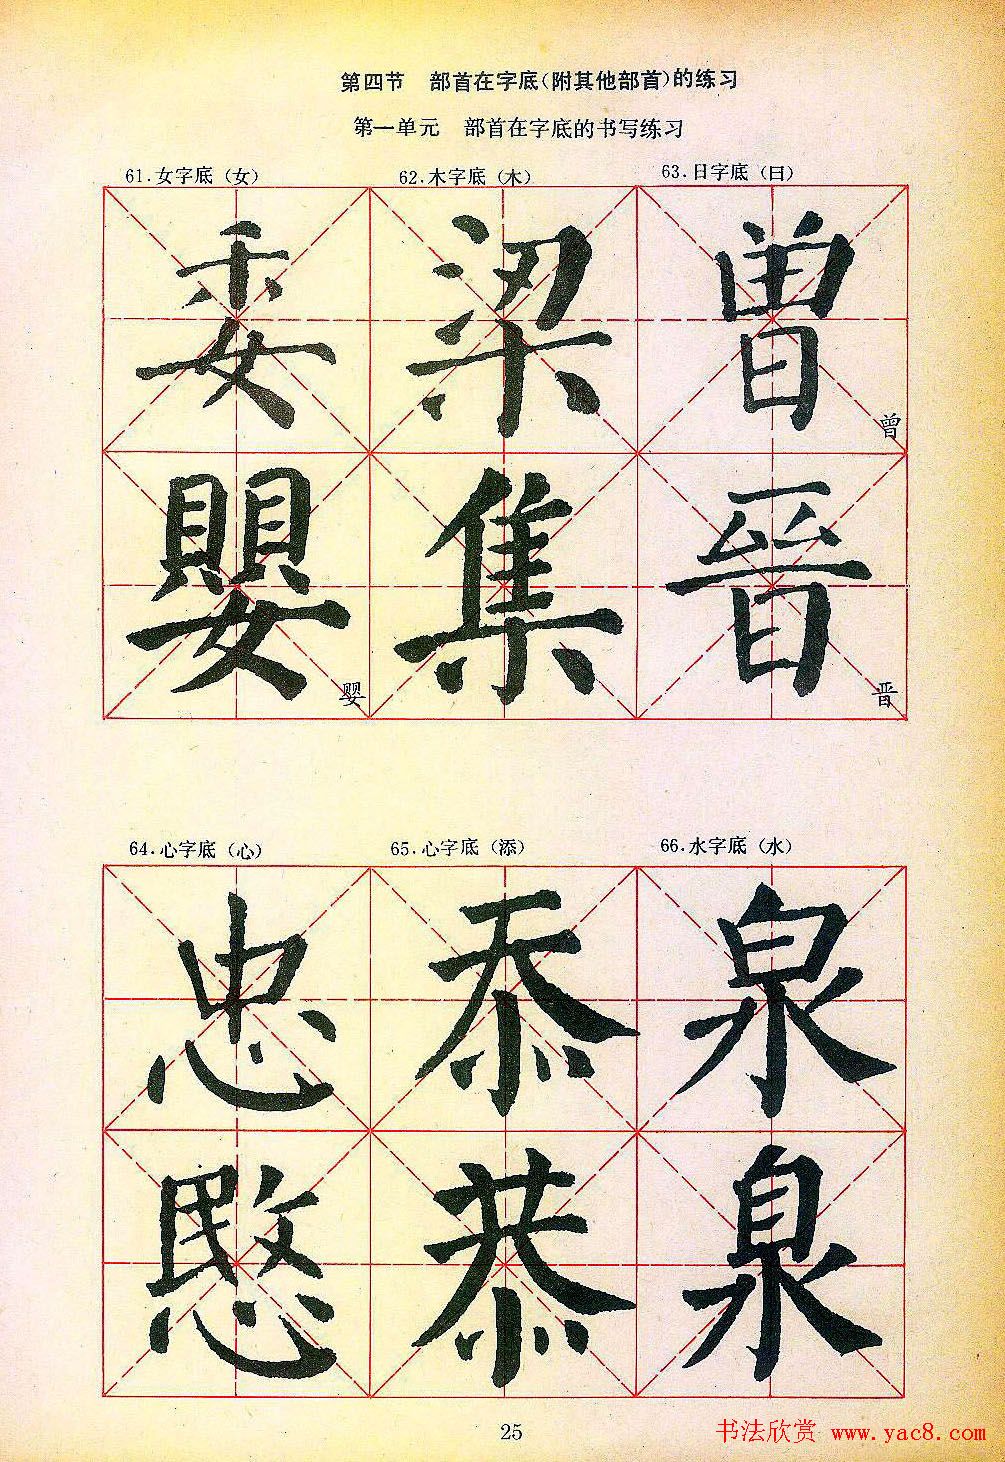 第四节 部首在字底(附其他部首)的练习
第一单元 部首在字底的书写练习
61.女字底(女) 62.木字底(木) 63.日字底(日)
委 梁 曾 曾
嬰 婴 集 晉 晋
64.心字底(心) 65.心字底(添) 66.水字底(水)
忠 忝 泉
愍 恭 泉
25
书法欣赏 www.yac8.com